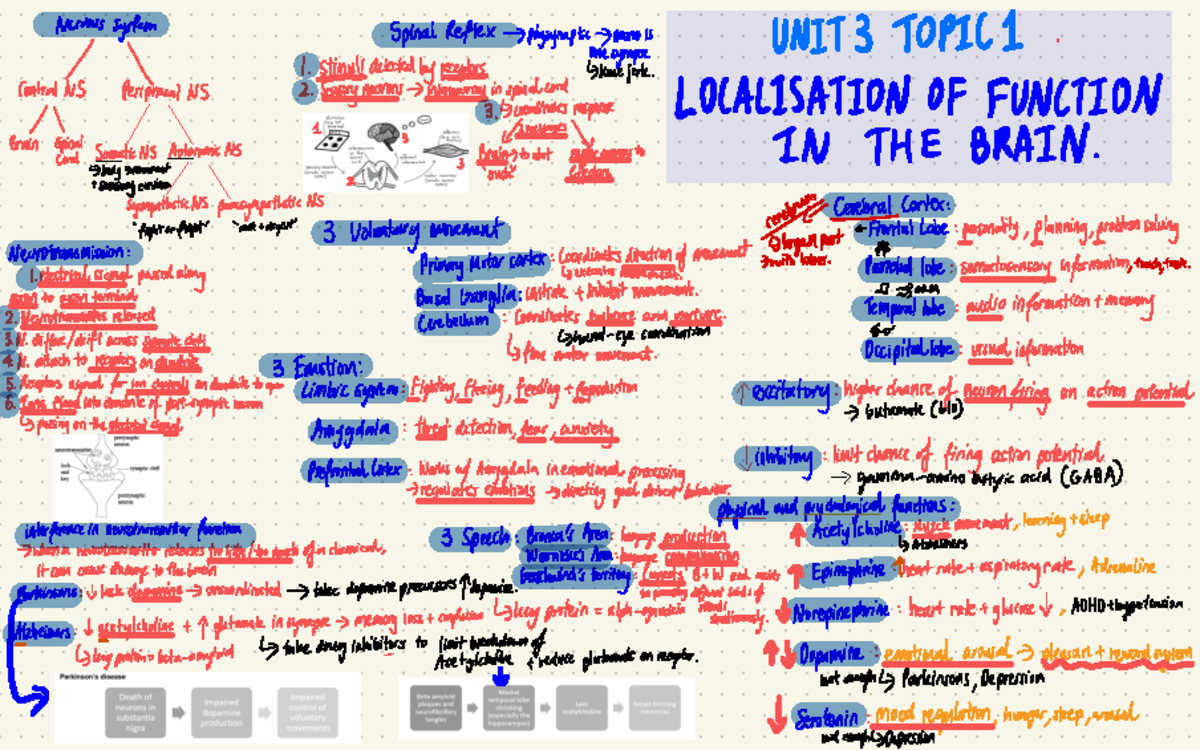 UNIT 3 TOPIC 1
LOCALISATION OF FUNCTION
IN THE BRAIN.
Nervous System
Central NS Peripheral NS
Brain Spinal Cord
Somatic NS Autonomic NS
↳ body movement
Sympathetic NS parasympathetic NS
"fight or flight" "rest + digest"
Neurotransmission:
1. electrical signal passed along
axon to axon terminal
2. Neurotransmitters released
3. N. diffuse/drift across synaptic cleft
4. N. attach to receptors on dendrite
5. Receptors signal for ion channels on dendrite to open
6. into dendrite of post-synaptic neuron
↳ passing on the electrical signal.
presynaptic neuron
neurotransmitter
lock and key
synaptic cleft
postsynaptic neuron
Spinal Reflex
↳ knee jerk.
1. Stimuli detected by receptors
2. Sensory neurons → interneuron in spinal cord
3. ↳ coordinates response
Brain
motor neurons to
effectors
3 Voluntary movement
Primary Motor cortex: Coordinates direction of movement
Basal Ganglia: initiate + inhibit movement.
Cerebellum: Coordinates balance and posture
↳ hand-eye coordination
↳ fine motor movement.
3 Emotion:
Limbic System: Fighting, Fleeing, Feeding + Reproduction
Amygdala: threat detection, fear, anxiety
Prefrontal Cortex: Works w/ Amygdala in emotional processing
→ regulates emotions → directing goal direct behaviour.
3 Speech: Broca's Area: language production
Wernicke's Area: language comprehension
Geschwind's territory
Cerebral Cortex:
cerebrum
↳ largest part
Frontal Lobe: personality, planning, problem solving
Parietal lobe: somatosensory information, touch,
Temporal lobe: audio information + memory
Occipital lobe: visual information
↑ excitatory: higher chance of neuron firing an action potential
→ Glutamate (Glu)
↓ inhibitory: limit chance of firing action potential
→ gamma-amino butyric acid (GABA)
physical and psychological functions:
↑ Acetylcholine: Muscle movement, learning + sleep
↳ Alzheimers
↑ Epinephrine: ↑ heart rate + respiratory rate, Adrenaline
↓ Norepinephrine: heart rate + glucose ↓, ADHD + hypotension
↑↓ Dopamine: emotional arousal → pleasure + reward system
not enough ↳ Parkinsons, Depression
↓ Serotonin: mood regulation, hunger, sleep, arousal
not enough ↳ Depression
interference in neurotransmitter function
→ when a neurotransmitter releases too little/too much of its chemical,
it can cause change to the brain
Parkinsons: ↓ lack dopamine → uncoordinated → take dopamine precursors ↑ dopamine.
↳ key protein = alph-synuclein
Alzheimers: ↓ acetylcholine + ↑ glutamate in synapse → memory loss + confusion
↳ key protein = beta-amyloid
↳ take drug inhibitors to limit breakdown of
Acetylcholine + reduce glutamate on receptor.
Parkinson's disease
Death of neurons in substantia nigra
Impaired dopamine production
Impaired control of voluntary movements
Beta amyloid plaques and neurofibrillary tangles
Medial temporal lobe shrinking (especially the hippocampus)
Less acetylcholine
Issues forming memories